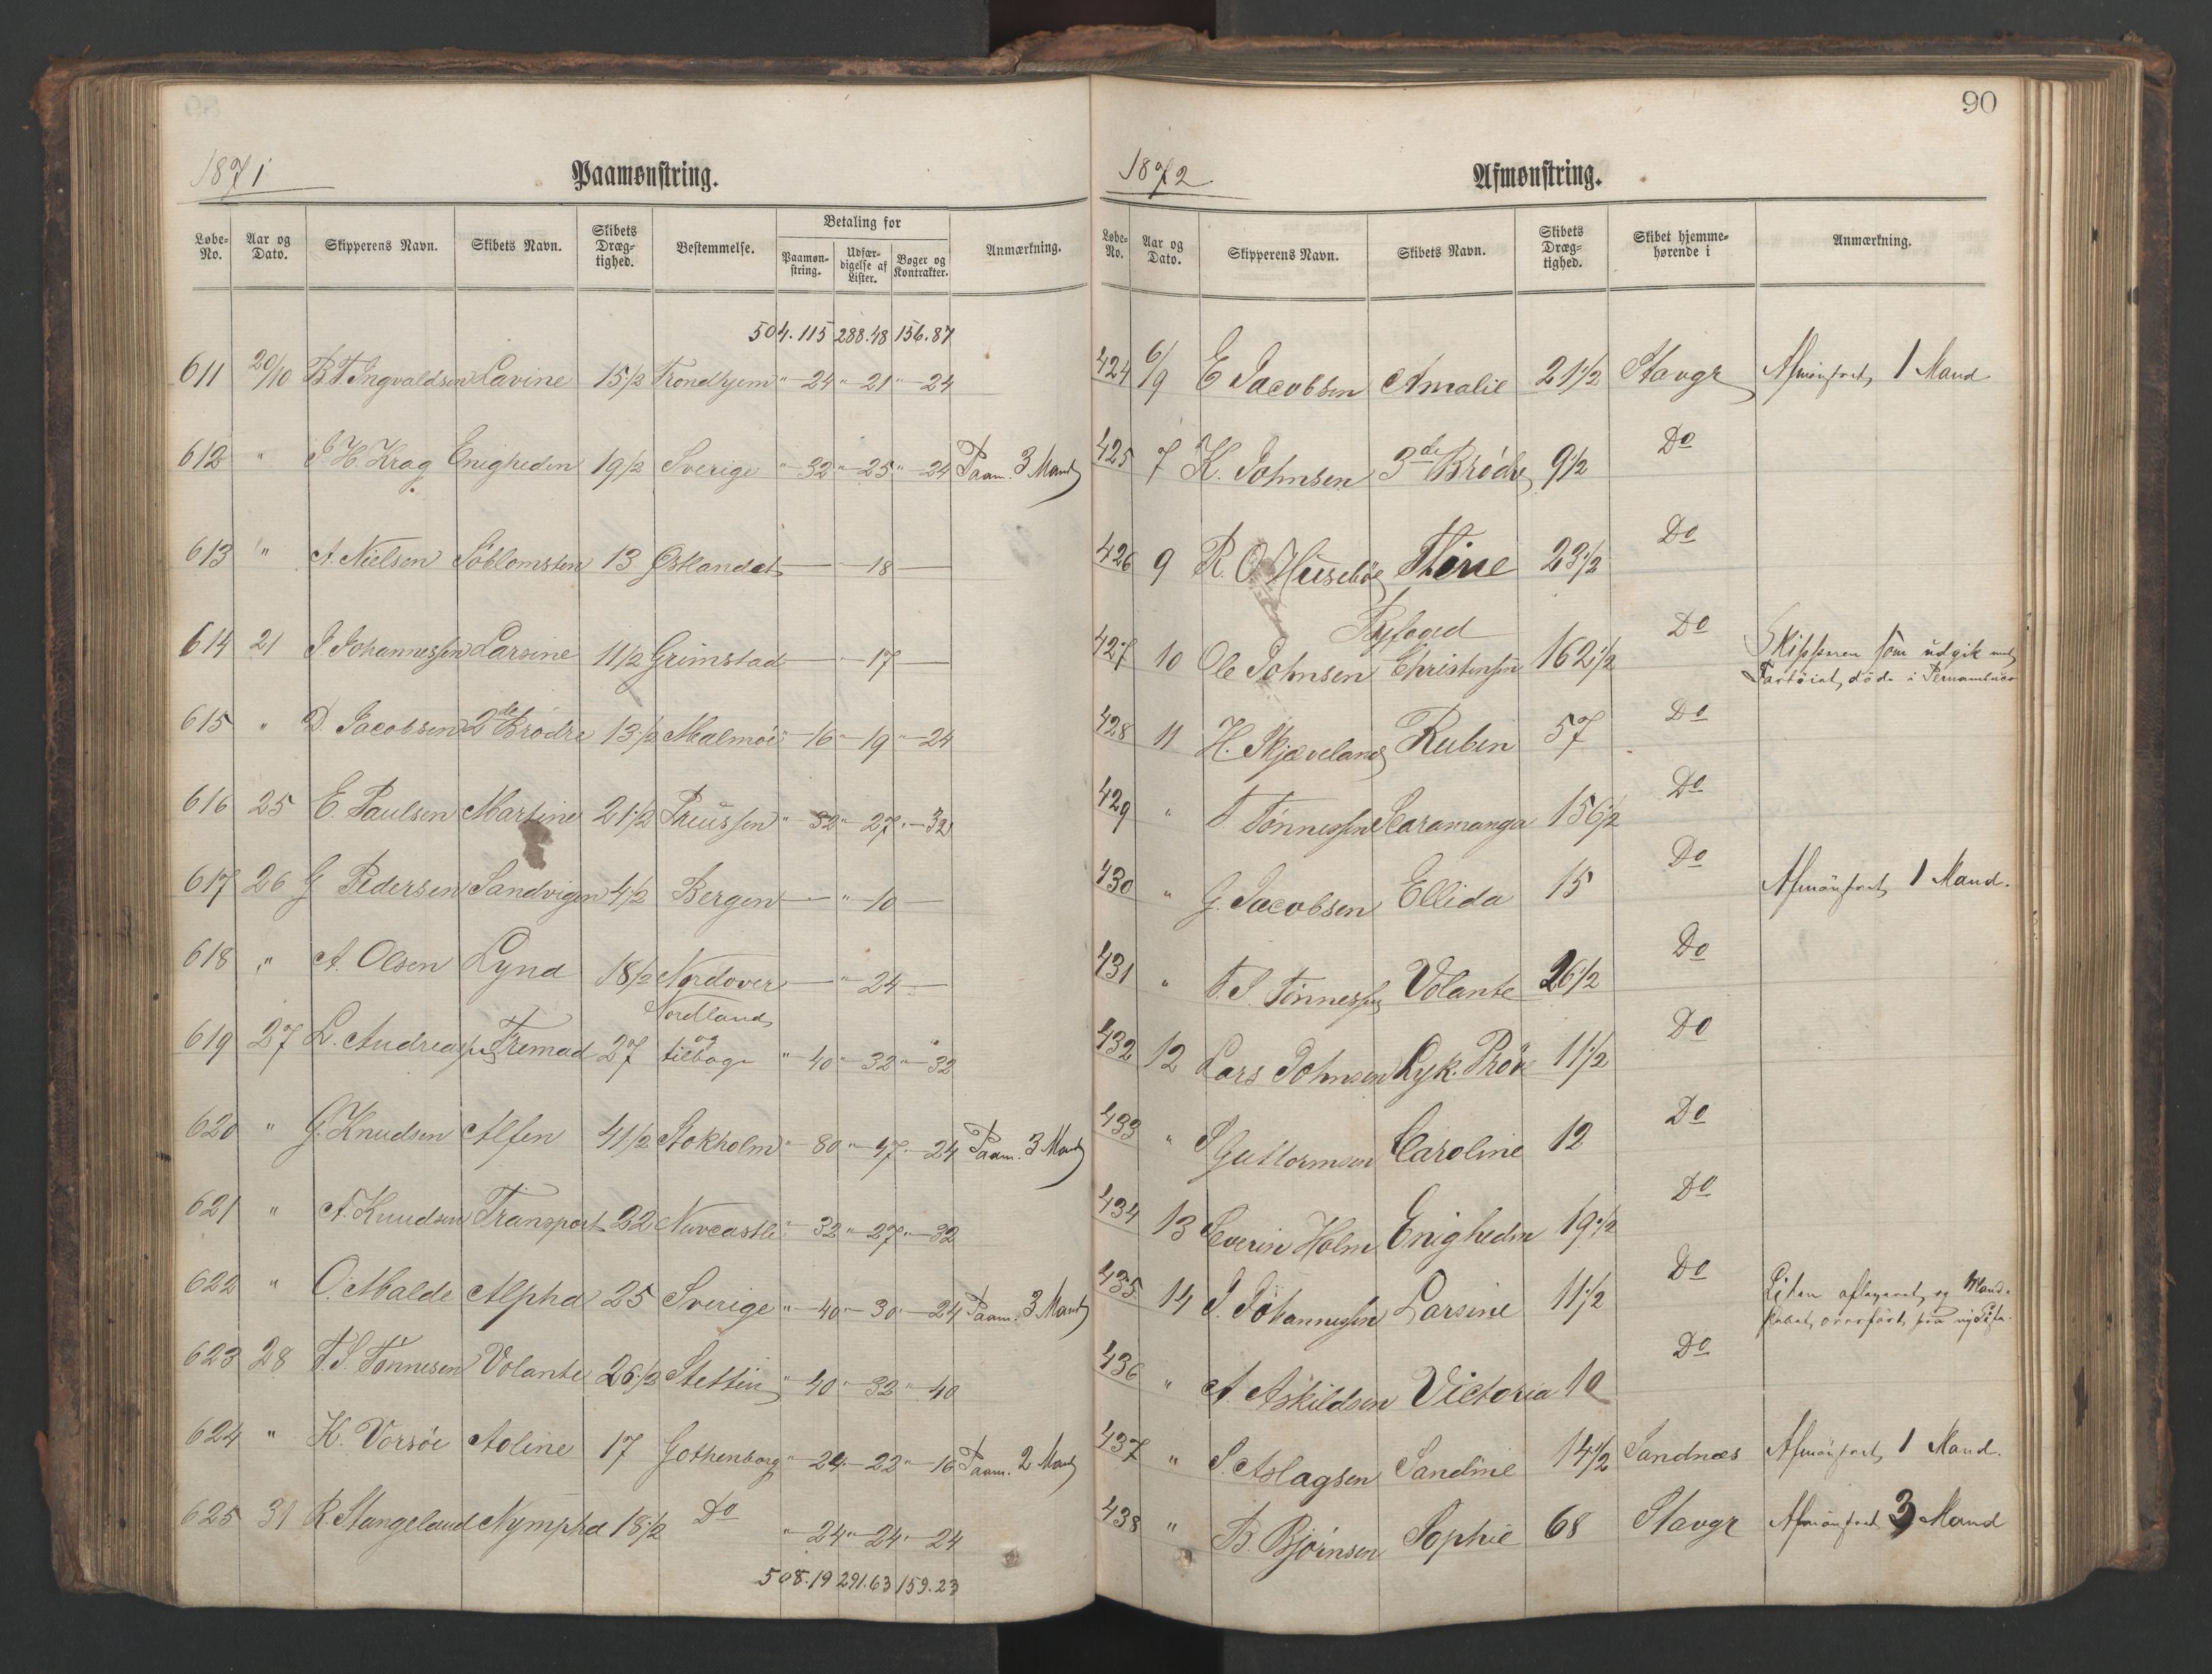 1871
Paamønstring.
Løbe-No. Aar og Dato. Skipperens Navn. Skibets Navn. Skibets Dræg-tighed. Bestemmelse. Betaling for Paamøn-string. Udfær-digelse af Lister. Bøger og Kontrakter. Anmærkning.
504.115 288.48 156.87
611 20/10 B. T. Ingvaldsen Lavine 15 1/2 Trondhjem " — 24 " — 21 " — 24
612 " J. H. Krag Enigheden 19 1/2 Sverige " — 32 " — 25 " — 24 Paam. 3 Mand
613 " A. Nielsen Söblomsten 13 Östlandet — " — 18 —
614 21 J Johannessen Larsine 11 1/2 Grimstad — " — 17 —
615 " D. Jacobsen 2de Brødre 13 1/2 Malmöe " — 16 " — 19 " — 24
616 25 E. Paulsen Martine 21 1/2 Preussen " — 32 " — 27 " — 32
617 26 G Pedersen Sandvigen 4 1/2 Bergen — " — 10 —
618 " A. Olsen Lynd 18 1/2 Nordover — " — 24 —
619 27 L. Andreassen Fremad 27 Nordland og tilbage " — 40 " — 32 " — 32
620 " G. Knudsen Alfen 41 1/2 Stokholm " — 80 " — 47 " — 24 Paam. 3 Mand
621 " A. Knudsen Transport 22 Newcastle " — 32 " — 27 " — 32
622 " O. Malde Alpha 25 Sverige " — 40 " — 30 " — 24 Paam. 3 Mand
623 28 T. S. Tønnesen Volante 26 1/2 Stettin " — 40 " — 32 " — 40
624 " K. Vorsöe Aoline 17 Gothenborg " — 24 " — 22 " — 16 Paam. 2 Mand
625 31 R. Stangeland Nympha 18 1/2 Do " — 24 " — 24 " — 24
508.19 291.63 159.23
90
1872
Afmønstring.
Løbe-No. Aar og Dato. Skipperens Navn. Skibets Navn. Skibets Dræg-tighed. Skibet hjemme-hørende i Anmærkning.
424 6/9 E Jacobsen Amalie 21 1/2 Stavgr Afmönstret 1 Mand
425 7 K. Johnsen 3de Brödre 9 1/2 Do
426 9 R. O. Huseböe Thine 23 1/2 Do
427 10 Ole Johnsen Byfoged Christensen 162 1/2 Do Skipperen som udgik med
Fartöiet, döde i Pernambuco
428 11 H. Skjæveland Rubin 57 Do
429 " T. Tønnessen Scaramanga 156 1/2 Do
430 " G. Jacobsen Ellida 15 Do Afmönstret 1 Mand.
431 " T. S. Tønnessen Volante 26 1/2 Do
432 12 Lars Johnsen Lyk. Pröve 11 1/2 Do
433 " S Guttormsen Caroline 12 Do
434 13 Severin Holm Enigheden 19 1/2 Do
435 14 J. Johannessen Larsine 11 1/2 Do Listen aflagret, og Mand-
skabet overfört paa ny Liste.
436 " A. Askildsen Victoria 10 Do
437 " S. Aslagsen Sandine 14 1/2 Sandnæs Afmönstret 1 Mand.
438 " B. Bjørnsen Sophie 68 Stavgr Afmönstret 3 Mand